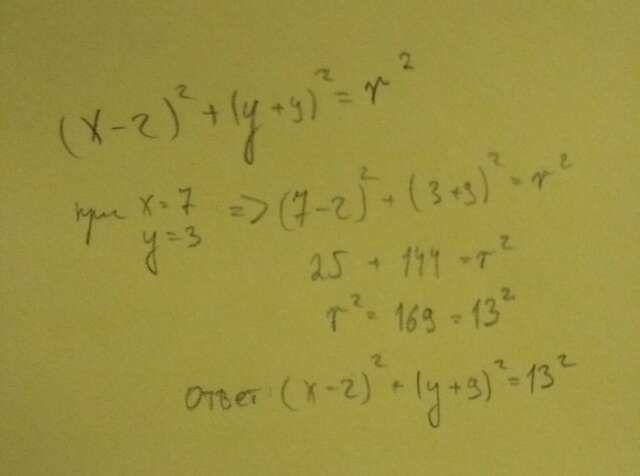 (x-2)² + (y+9)² = r²
при x=7 => (7-2)² + (3+9)² = r²
y=3
25 + 144 = r²
r² = 169 = 13²
ответ: (x-2)² + (y+9)² = 13²